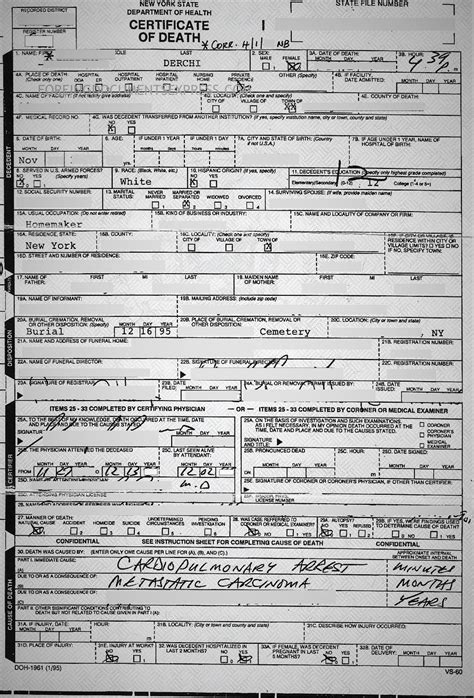 RECORDED DISTRICT
NEW YORK STATE
STATE FILE NUMBER
DEPARTMENT OF HEALTH
CERTIFICATE
REGISTER NUMBER
OF DEATH
* CORR. # 1 NB
1. NAME: FIRST MIDDLE LAST
2. SEX: MALE FEMALE
3A. DATE OF DEATH: MONTH DAY YEAR
3B. HOUR:
DERCHI
4A. PLACE OF DEATH: (Check only one) HOSPITAL DOA HOSPITAL ER HOSPITAL OUTPATIENT HOSPITAL INPATIENT NURSING HOME PRIVATE RESIDENCE OTHER (Specify)
4B. IF FACILITY, DATE ADMITTED: MONTH DAY YEAR
4C. NAME OF FACILITY: (If not facility give address)
4D. LOCALITY: (Check one and specify) CITY OF VILLAGE OF TOWN OF
4E. COUNTY OF DEATH:
4F. MEDICAL RECORD NO.
4G. WAS DECEDENT TRANSFERRED FROM ANOTHER INSTITUTION? (If yes, specify institution name, city or town, county and state)
NO YES
DECEDENT
5. DATE OF BIRTH: MONTH DAY YEAR
6. AGE:
IF UNDER 1 YEAR
IF UNDER 1 DAY
7A. CITY AND STATE OF BIRTH: (Country if not U.S.A.)
7B. IF AGE UNDER 1 YEAR, NAME OF HOSPITAL OF BIRTH:
Nov
8. SERVED IN U.S. ARMED FORCES? (Specify years)
9. RACE: (Black, White, etc.)
10. HISPANIC ORIGIN? (If yes, specify)
11. DECEDENT'S EDUCATION: (Specify only highest grade completed)
White
Elementary/Secondary (0-12) 12 College (1-4 or 5+)
12. SOCIAL SECURITY NUMBER:
13. MARITAL STATUS: NEVER MARRIED MARRIED OR SEPARATED WIDOWED DIVORCED
14. SURVIVING SPOUSE: (If wife, provide maiden name)
15A. USUAL OCCUPATION: (Do not enter retired)
15B. KIND OF BUSINESS OR INDUSTRY:
15C. NAME AND LOCALITY OF COMPANY OR FIRM:
Homemaker
16A. RESIDENCE, STATE:
16B. COUNTY:
16C. LOCALITY: (Check one and specify) CITY OF VILLAGE OF TOWN OF
New York
16D. STREET AND NUMBER OF RESIDENCE:
16E. ZIP CODE:
17. NAME OF FATHER: FIRST MI LAST
18. MAIDEN NAME OF MOTHER: FIRST MI LAST
19A. NAME OF INFORMANT:
19B. MAILING ADDRESS: (Include zip code)
DISPOSITION
20A. BURIAL, CREMATION, REMOVAL OR OTHER DISPOSITION: (Specify) MONTH DAY YEAR
20B. PLACE OF BURIAL, CREMATION, REMOVAL OR OTHER DISPOSITION:
20C. LOCATION: (City or town and state)
Burial 12 16 95 Cemetery , NY
21A. NAME AND ADDRESS OF FUNERAL HOME:
21B. REGISTRATION NUMBER:
22A. NAME OF FUNERAL DIRECTOR:
22B. SIGNATURE OF FUNERAL DIRECTOR:
22C. REGISTRATION NUMBER:
23A. SIGNATURE OF REGISTRAR:
23B. DATE FILED: MONTH DAY YEAR
24A. BURIAL OR REMOVAL PERMIT ISSUED BY:
24B. DATE ISSUED: MONTH DAY YEAR
ITEMS 25 - 33 COMPLETED BY CERTIFYING PHYSICIAN — OR — ITEMS 25 - 33 COMPLETED BY CORONER OR MEDICAL EXAMINER
CERTIFIER
25A. TO THE BEST OF MY KNOWLEDGE, DEATH OCCURRED AT THE TIME, DATE AND PLACE AND DUE TO THE CAUSES STATED.
25A. ON THE BASIS OF INVESTIGATION AND SUCH EXAMINATIONS, AS I FELT NECESSARY, IN MY OPINION DEATH OCCURRED AT THE TIME, DATE AND PLACE AND DUE TO THE CAUSES STATED.
CORONER
CORONER'S PHYSICIAN
MEDICAL EXAMINER
SIGNATURE MONTH DAY YEAR
SIGNATURE AND TITLE MONTH DAY YEAR
25B. THE PHYSICIAN ATTENDED THE DECEASED
25C. LAST SEEN ALIVE BY ATTENDANT:
25B. PRONOUNCED DEAD
25C. HOUR:
25D. DATE SIGNED:
M.D.
25E. NAME OF CORONER OR CORONER'S PHYSICIAN, IF OTHER THAN CERTIFIER:
27. MANNER OF DEATH: NATURAL CAUSE ACCIDENT HOMICIDE SUICIDE UNDETERMINED CIRCUMSTANCES PENDING INVESTIGATION
28. WAS CASE REFERRED TO CORONER OR MEDICAL EXAMINER?
29A. AUTOPSY?
29B. IF YES, WERE FINDINGS USED TO DETERMINE CAUSE OF DEATH?
CONFIDENTIAL SEE INSTRUCTION SHEET FOR COMPLETING CAUSE OF DEATH CONFIDENTIAL
CAUSE OF DEATH
30. DEATH WAS CAUSED BY: (ENTER ONLY ONE CAUSE PER LINE FOR (A), (B), AND (C).)
APPROXIMATE INTERVAL BETWEEN ONSET AND DEATH
PART I. IMMEDIATE CAUSE:
CARDIOPULMONARY ARREST MINUTES
DUE TO OR AS A CONSEQUENCE OF:
METASTATIC CARCINOMA MONTHS
DUE TO OR AS A CONSEQUENCE OF:
YEARS
PART II. OTHER SIGNIFICANT CONDITIONS CONTRIBUTING TO DEATH BUT NOT RELATED TO CAUSE GIVEN IN PART I (A):
31A. IF INJURY, DATE: MONTH DAY YEAR
HOUR:
31B. LOCALITY: (City or town and county and state)
31C. DESCRIBE HOW INJURY OCCURRED:
31D. PLACE OF INJURY:
31E. INJURY AT WORK? NO YES
32. WAS DECEDENT HOSPITALIZED IN LAST 2 MONTHS? NO YES
33A. IF FEMALE, WAS DECEDENT PREGNANT IN LAST 6 MONTHS? NO YES
33B. DATE OF DELIVERY: MONTH DAY YEAR
DOH-1961 (1/95)
VS-60